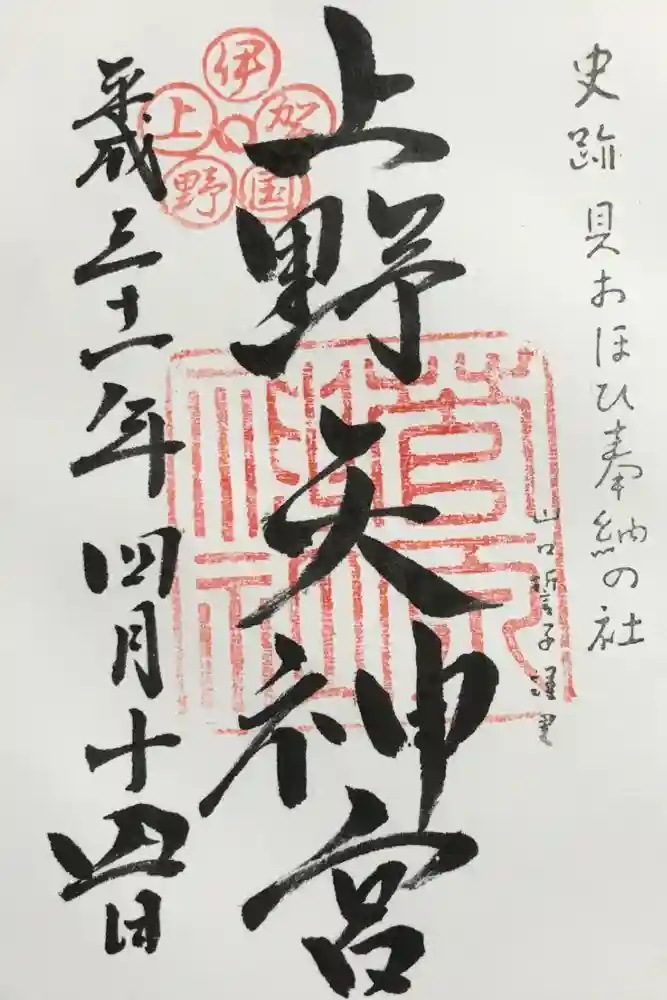 史跡 貝おほひ奉納の社
上野天神宮
伊賀国上野
平成三十一年四月十四日